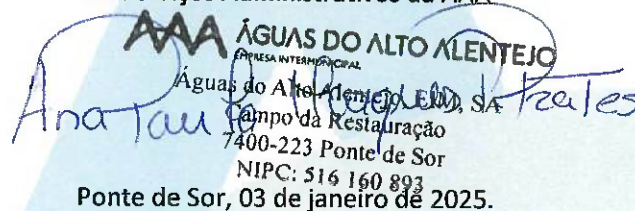 AAA ÁGUAS DO ALTO ALENTEJO
EMPRESA INTERMUNICIPAL
Águas do Alto Alentejo, EIM, SA
Campo da Restauração
7400-223 Ponte de Sor
NIPC: 516 160 893
Ana Paula Prates
Ponte de Sor, 03 de janeiro de 2025.